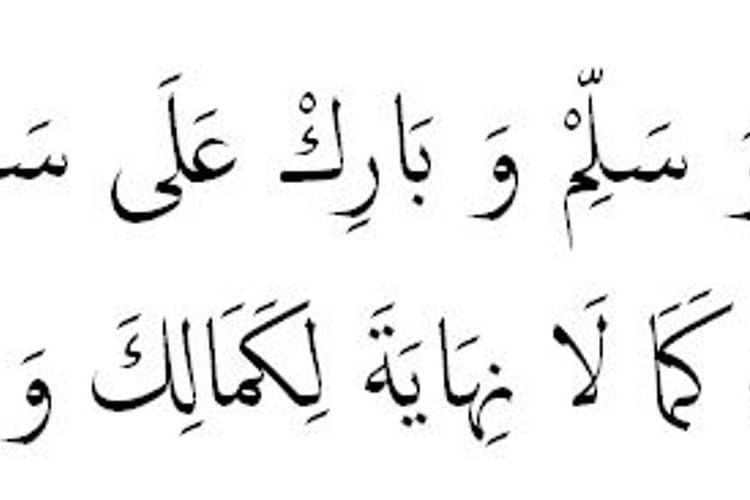 وَ سَلِّمْ وَ بَارِكْ عَلَى سَـ
كَمَا لَا نِهَايَةَ لِكَمَالِكَ وَ